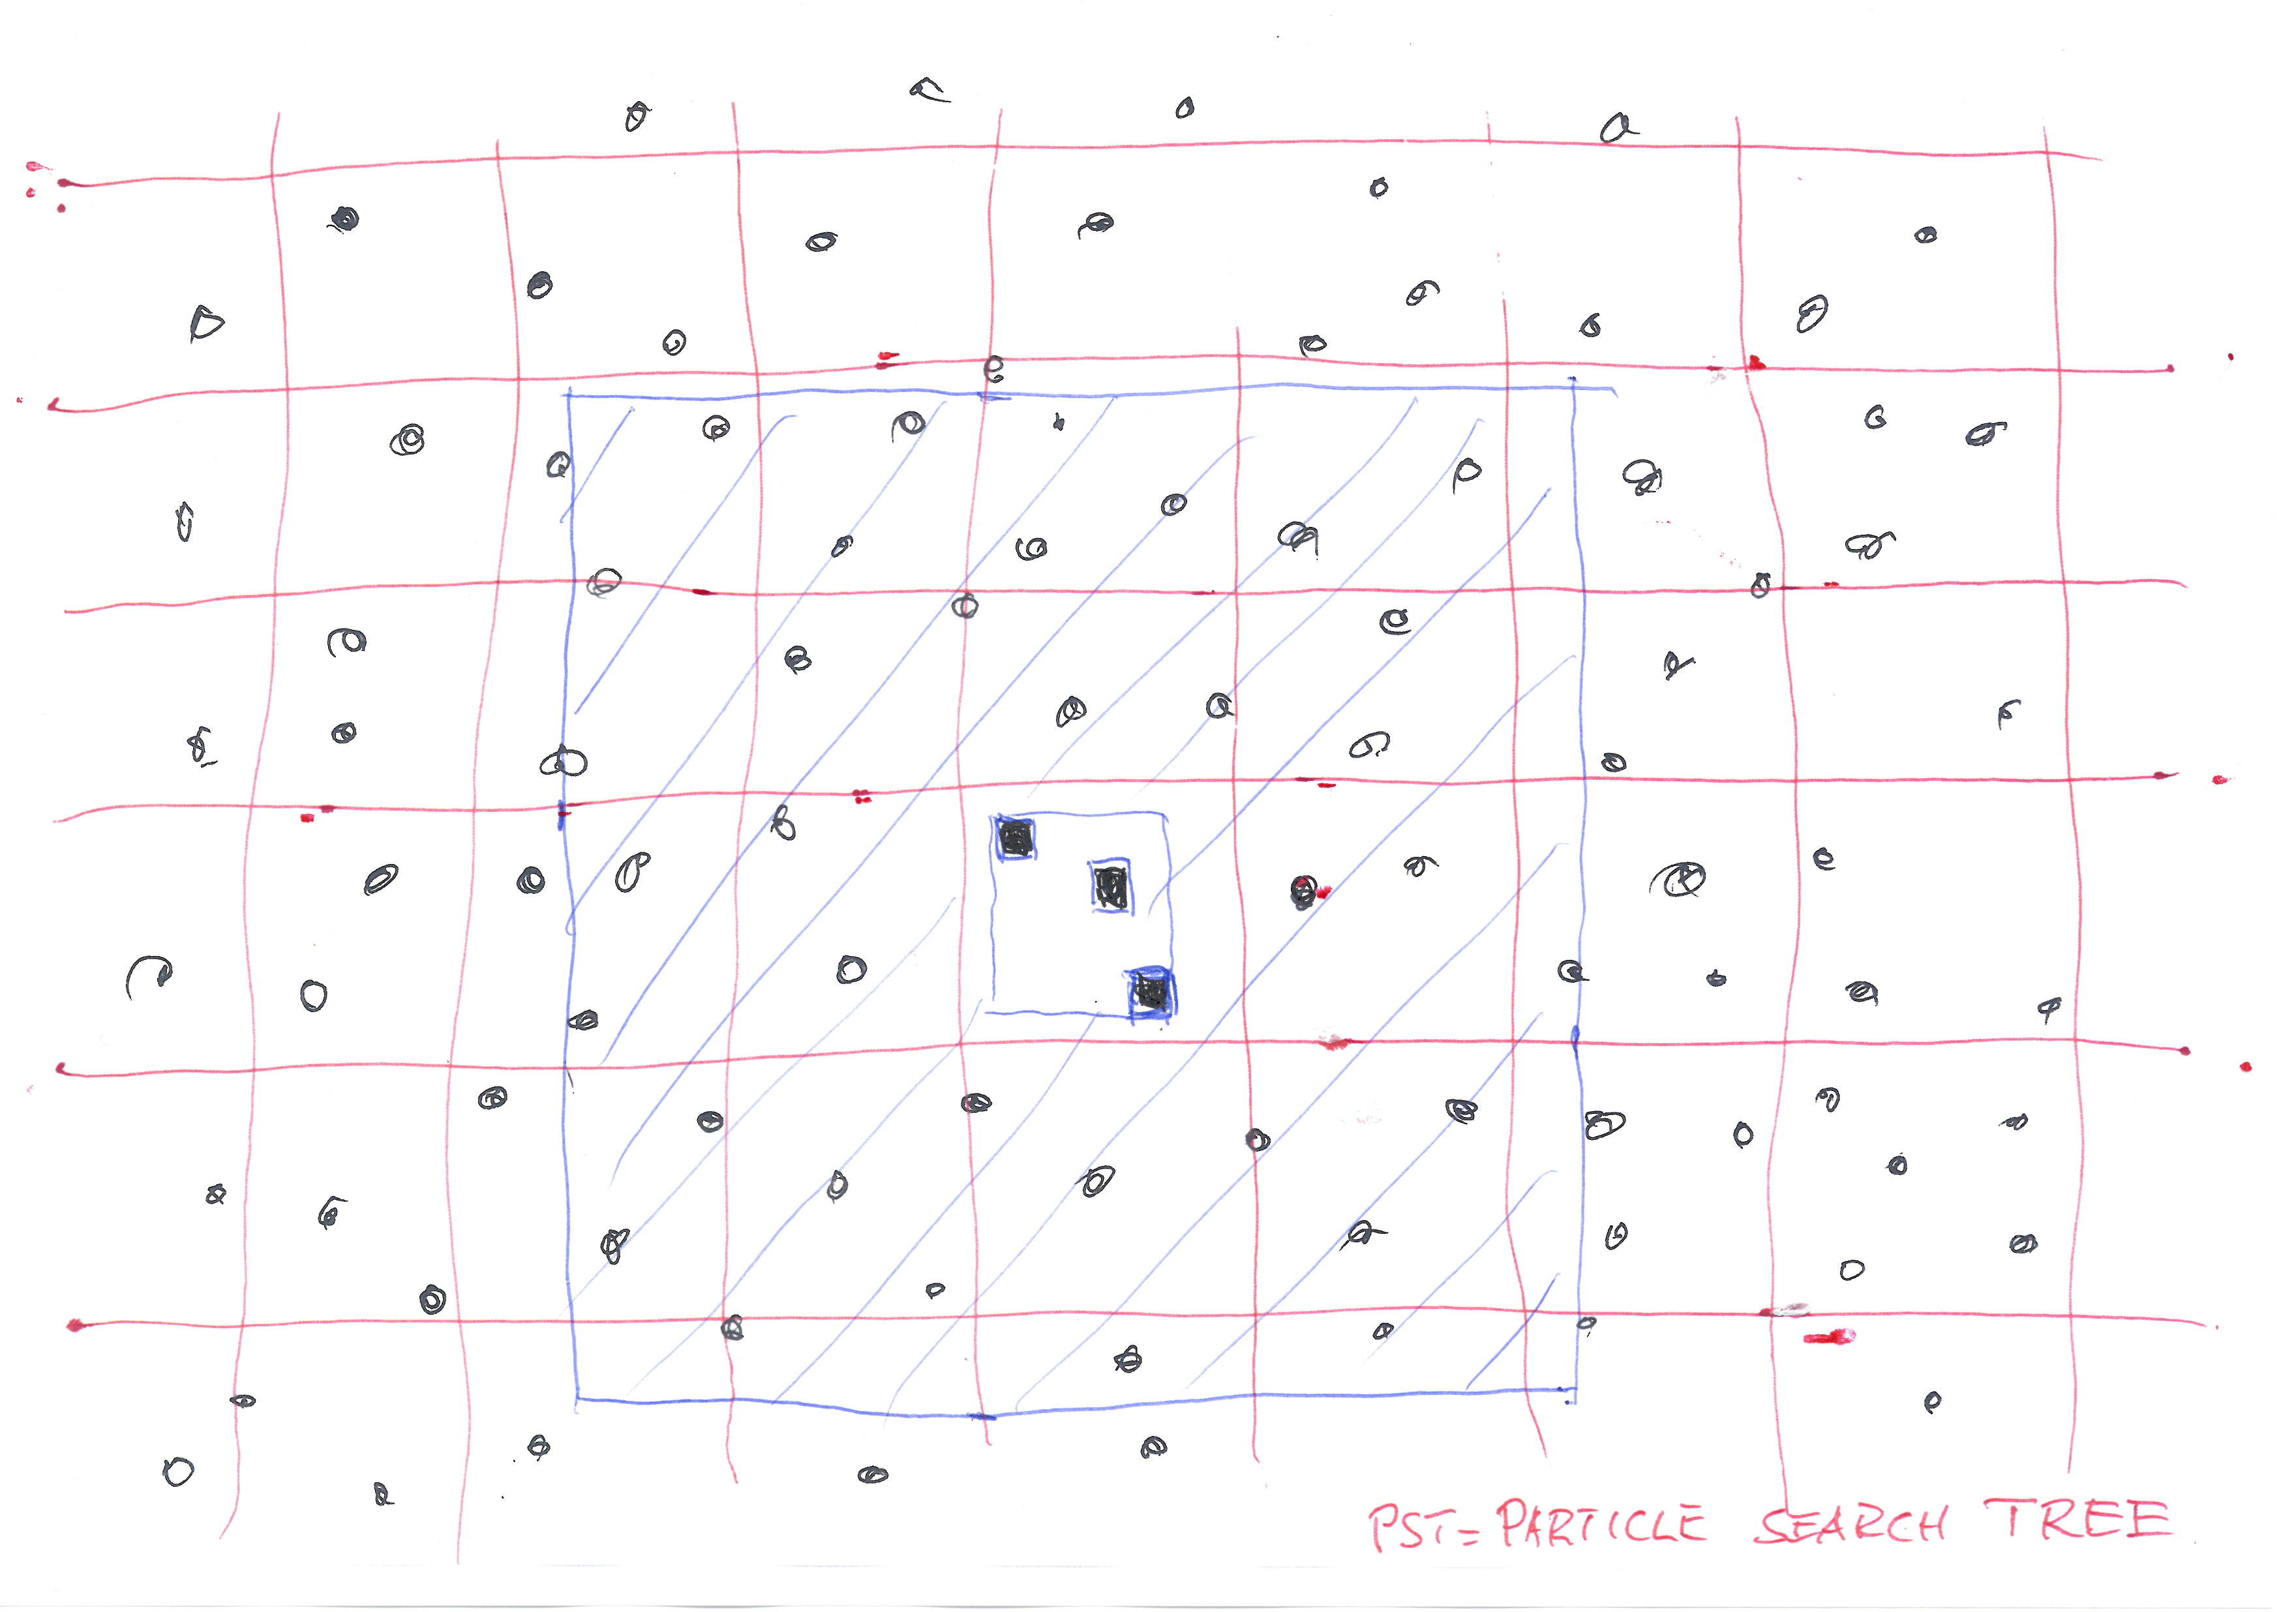 PST=PARTICLE SEARCH TREE